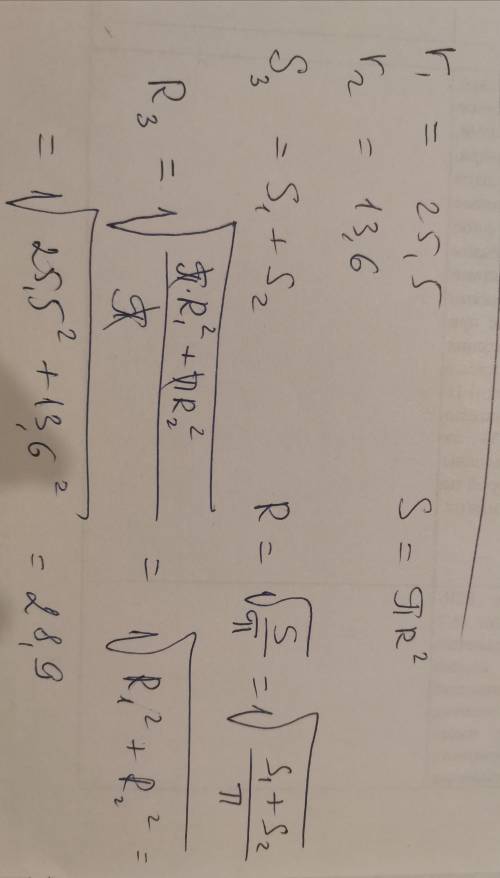 r₁ = 25,5
r₂ = 13,6
S = πR²
S₃ = S₁ + S₂
R = √(S/π) = √((S₁ + S₂)/π)
R₃ = √((π·R₁² + πR₂²)/π) = √(R₁² + R₂²) =
= √(25,5² + 13,6²) = 28,9